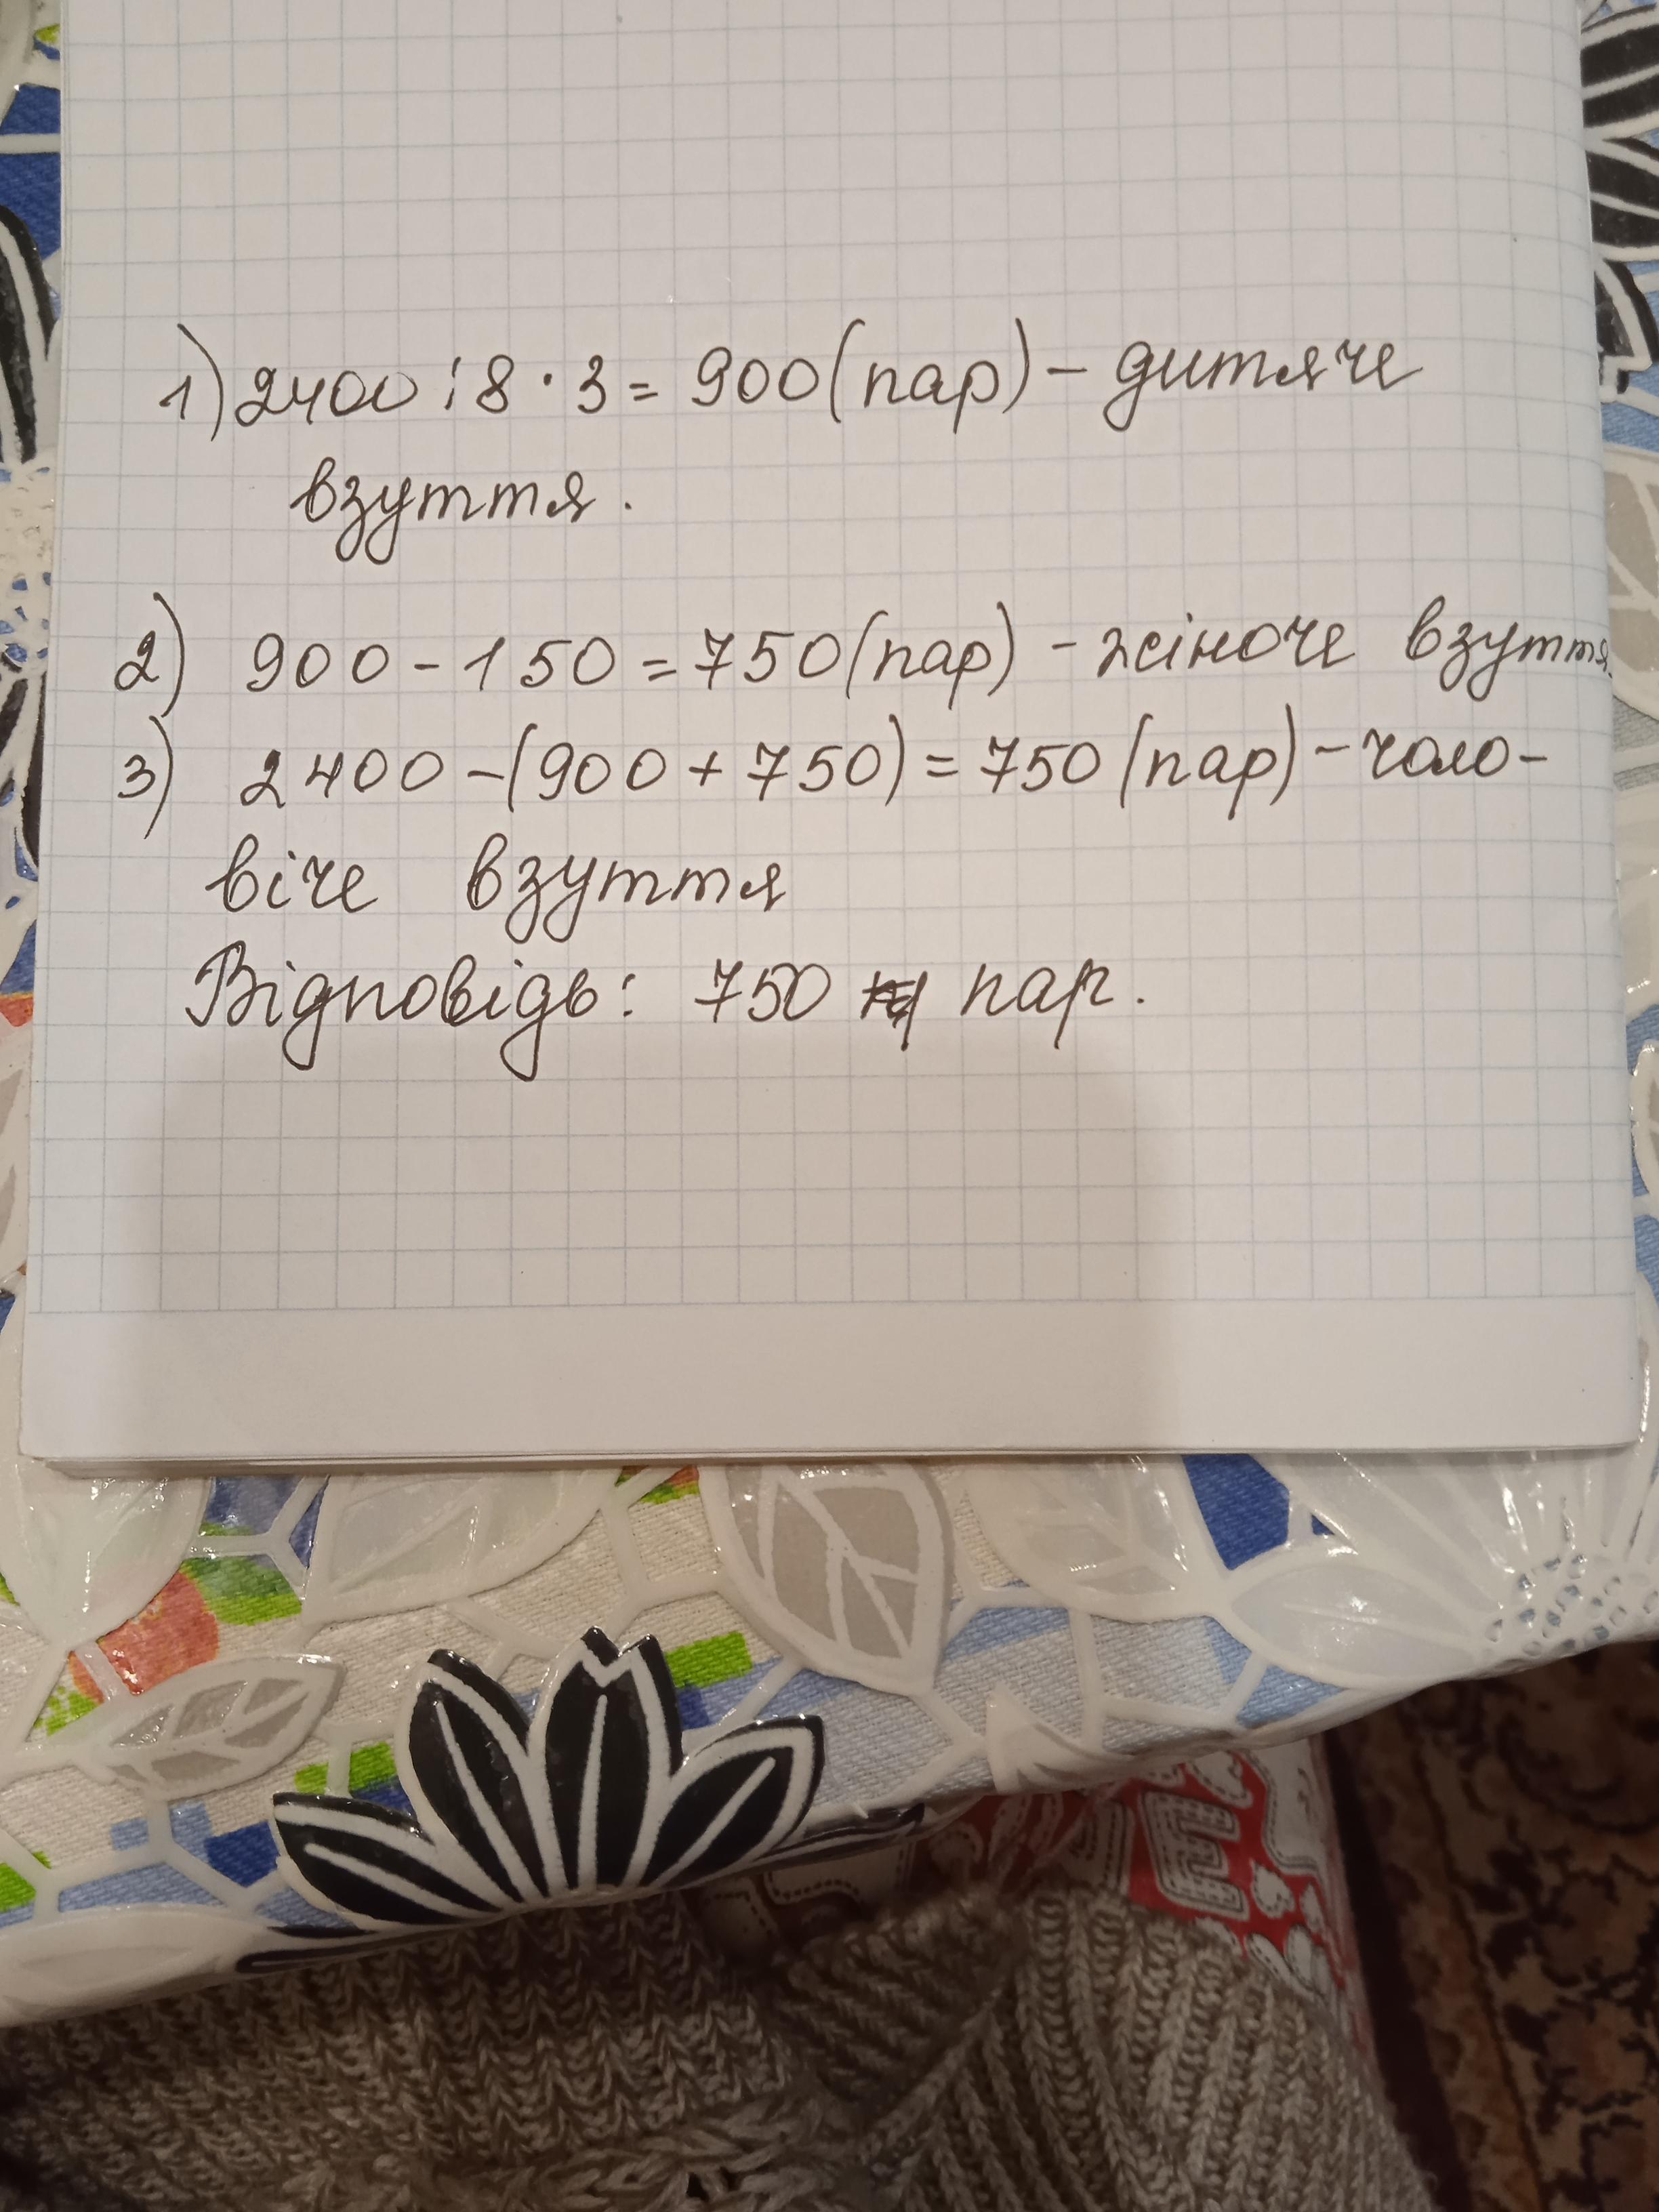 1) 2400 : 8 · 3 = 900 (пар) – дитяче
взуття.
2) 900 – 150 = 750 (пар) – жіноче взуття.
3) 2400 – (900 + 750) = 750 (пар) – чоло-
віче взуття
Відповідь: 750 пар.